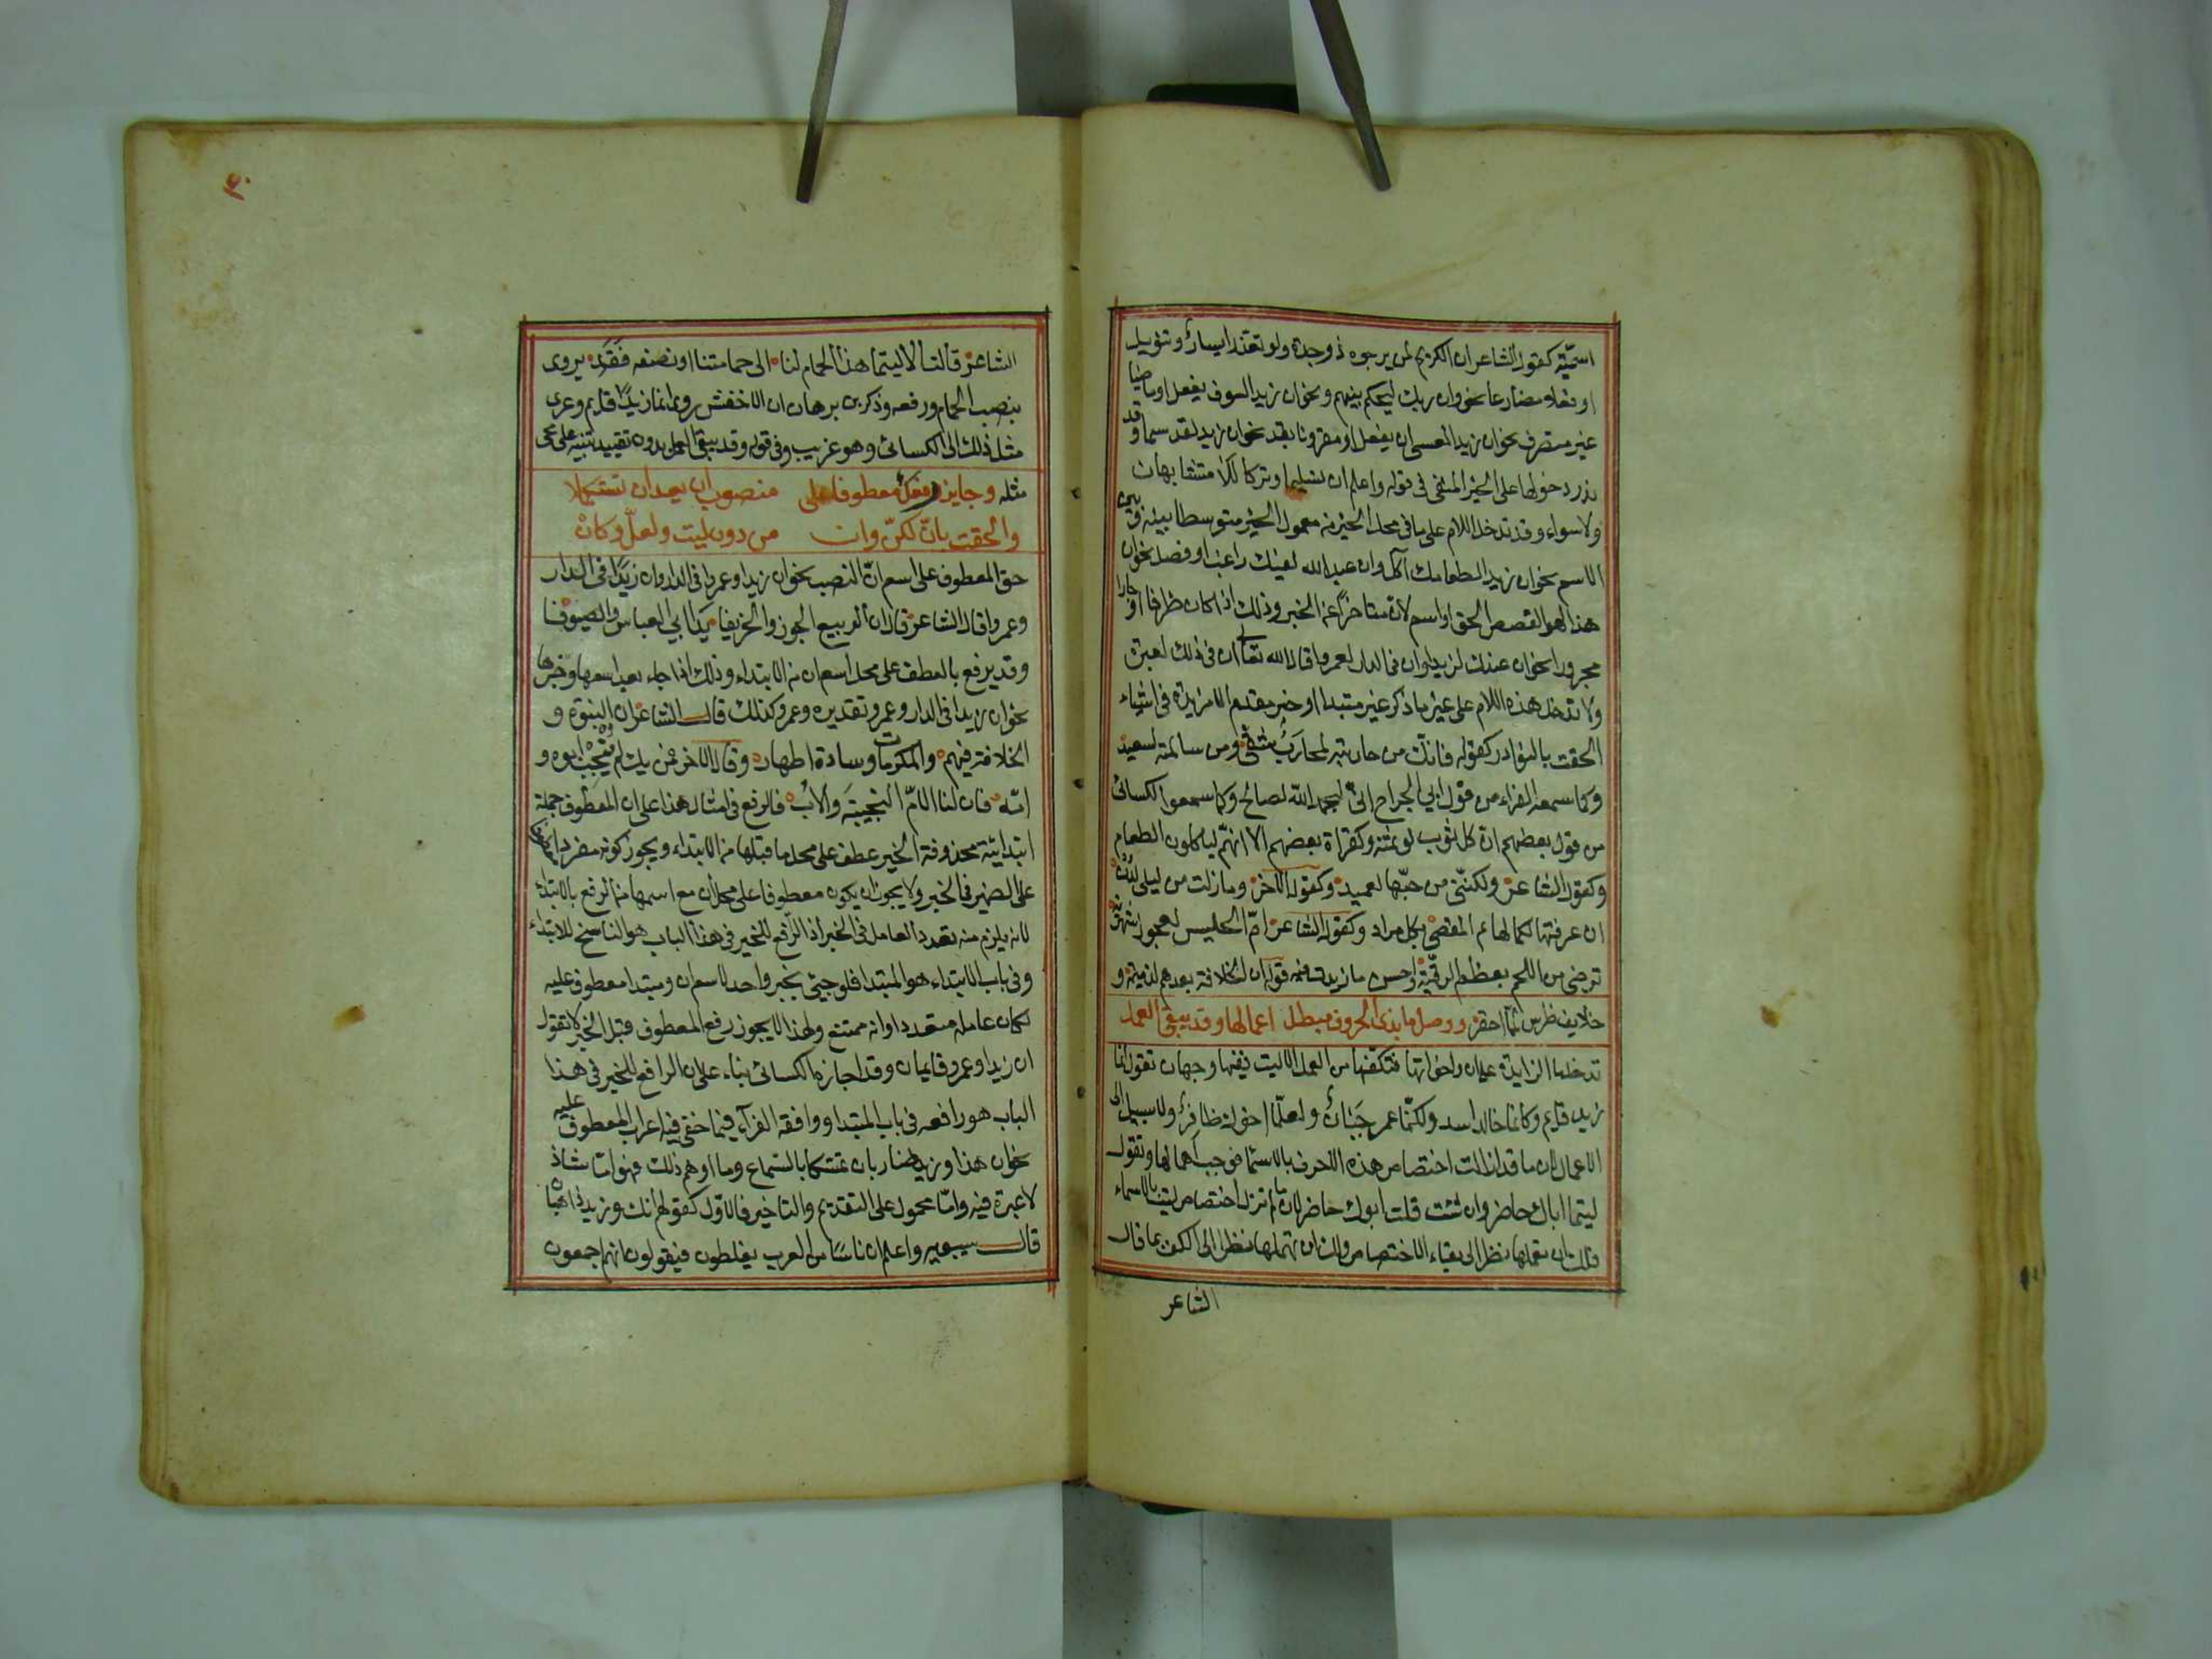 اسميّة كقول الشاعر ان الكريم لمن يرجوه ذو جدة ولو تعذر ايسار وتنويل
او فعلا مضارعا نحو وان ربك ليحكم بينهم ونحو ان زيدا لسوف يفعل او ماضيا
غير متصرف نحو ان زيدا لعسى ان يفعل او مقرونا بقد نحو ان زيدا لقد سما وقد
ندر دخولها على الخبر المنفى فى قوله واعلم ان تسليما وتركا للا متشابهان
ولا سواء وقد تدخل اللام على ما فى محل الخبر من معمول الخبر متوسطا بينه وبين
الاسم نحو ان زيدا لطعامك آكل وان عبدالله لفيك راغب او فصل نحو ان
هذا لهو القصص الحق او اسم لان متاخرا عن الخبر وذلك اذا كان ظرفا او جارا
مجرورا نحو ان عندك لزيدا وان فى الدار لعمروا قال الله تعالى ان فى ذلك لعبرة
ولا تدخل هذه اللام على غير ما ذكر غير مبتدا او خبر مقدم الا مزيدة فى اشياء
الحقت بالنوادر كقوله فانك من حاربته لمحارَبٌ شقى ومن سالمته لسعيد
وكما سمعه الفراء من قول ابي الجراح انى لبحمد الله لصالح وكما سمعوا الكسائى
من قول بعضهم ان كل ثوب لو ثمنه وكقراة بعضهم الا انهم لياكلون الطعام
وكقول الشاعر ولكننى من حبّها لعميد وكقول الآخر وما زلت من ليلى لدن
ان عرفتها لكالهائم المقصى بكل مراد وكقول الشاعر امّ الحليس لعجوز شهربة
ترضى من اللحم بعظم الرقبة واحسن ما زيدت فيه قوله ان الخلافة بعدهم لذميمة و
خلايف ظرف لمّا احقر ووصل ما بذى الحروف مبطل اعمالها وقد يبقى العمل
تدخل ما الزايدة على ان واخواتها فتكفها من العمل الا ليت ففيها وجهان تقول انما
زيد قايم وكانما خالد اسد ولكنّما عمر جَبَانٌ ولعلّما اخوك ظافرٌ ولا سبيل الى
الاعمال لان ما قد ازالت اختصاص هذه الاحرف بالاسما فوجب اهمالها وتقول
ليتما اباك حاضر وان شئت قلت ابوك حاضر لان ما لم تزل اختصاص ليت بالاسماء
فلك ان تعملها نظرا الى بقاء الاختصاص ولك ان تهملها نظرا الى الكف بما قال
الشاعر
٣٠
الشاعر قالت الا ليتما هذا الحمام لنا الى حمامتنا او نصفه فَقَدِ يروى
بنصب الحمام ورفعه وذكر بن برهان ان الاخفش روى انما زيدًا قايم وعزى
مثل ذلك الى الكسائى وهو غريب وفى قوله وقد يبقى العمل بدون تقييد تنبيه على مجى
مثله وجايز رفعك معطوفا على منصوب ان بعد ان تستكملا
والحقت بانّ لكنّ وان من دون ليت ولعلّ وكان
حق المعطوف على اسم انّ النصب نحو ان زيدا وعمروا فى الدار وان زيدًا فى الدار
وعمروا قال الشاعر قال ان الربيع الجون والخريفا يدا ابي العباس والصيوفا
وقد يرفع بالعطف على محل اسم ان من الابتداء وذلك اذا جاء بعد اسمها وخبرها
نحو ان زيدا فى الدار وعمرو تقديره وعمرو كذلك قال الشاعر ان النبوة و
الخلافة فيهم والمكرمات وسادة اطهار وقال الآخر فمن يك لم يُنجِبْ ابوه و
امّه فان لنا الامّ النجيبةَ والابُ فالرفع فى امثال هذا على ان المعطوف جملة
ابتدائية محذوفة الخبر عطف على محل ما قبلها من الابتداء ويجوز كونه مفردا
على الضمير فى الخبر ولا يجوز ان يكون معطوفا على محل ان مع اسمها من الرفع بالابتداء
لانه يلزم منه تعدد العامل فى الخبر اذ الرافع للخبر فى هذا الباب هو الناسخ للابتداء
وفى باب الابتداء هو المبتدا فلو جيئ بخبر واحد لاسم ان ومبتدا معطوف عليه
لكان عامله متعددا وانه ممتنع ولهذا لا يجوز رفع المعطوف قبل الخبر لا تقول
ان زيدا وعمرو قايمان وقد اجازه الكسائى بناء على ان الرافع للخبر فى هذا
الباب هو رافعه فى باب المبتدا ووافقه الفرآء فيما خفى فيه اعراب المعطوف عليه
نحو ان هذا وزيد ضاربان تمسكا بالسماع وما اوهم ذلك فهو امّا شاذ
لا عبرة فيه وامّا محمول على التقديم والتاخير فالاوّل كقولهم انك وزيد ذاهبان
قال سيبويه واعلم ان ناسًا من العرب يغلطون فيقولون انهم اجمعون